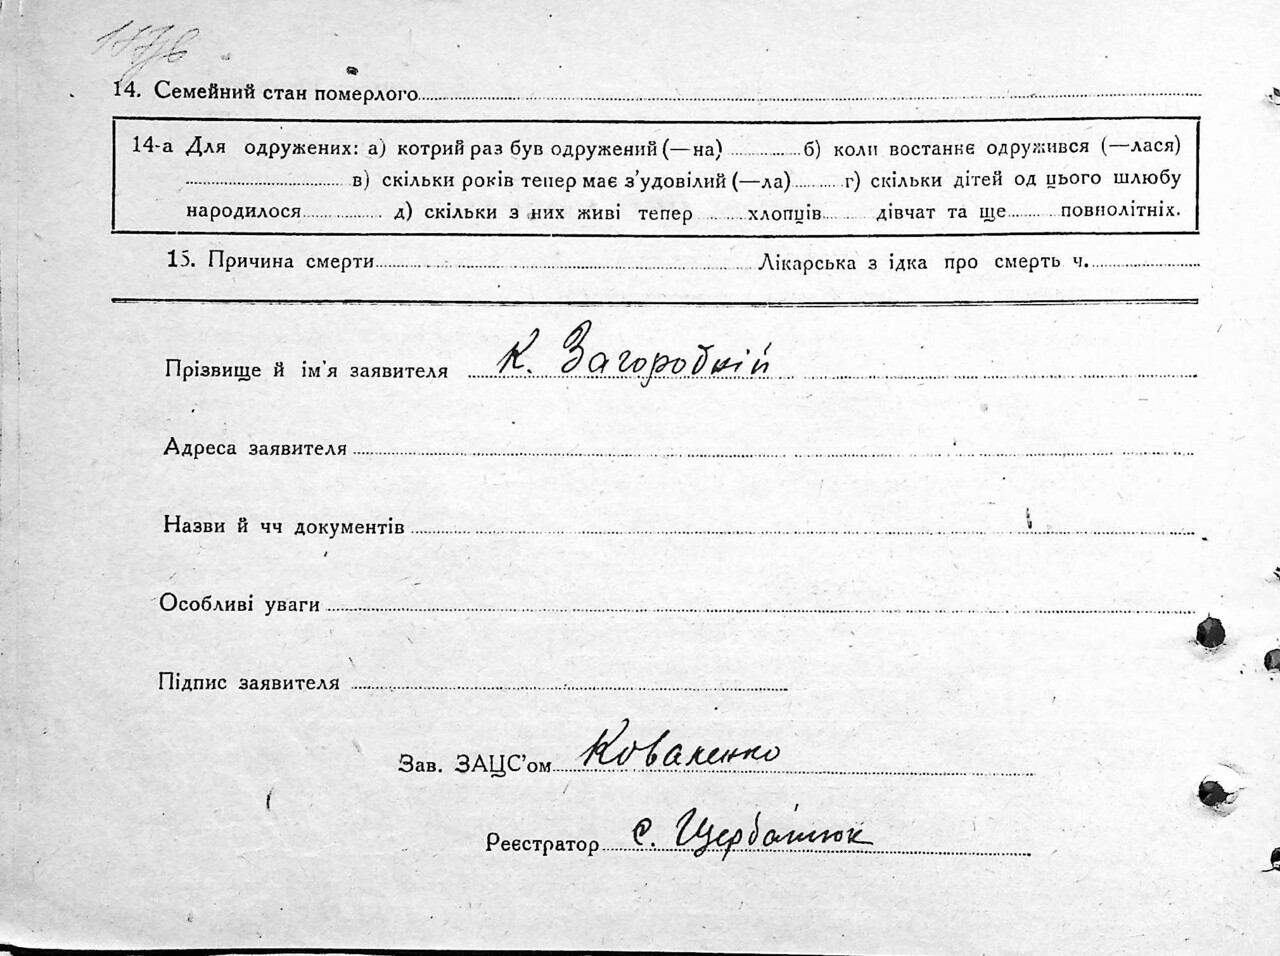 14. Семейний стан померлого
14-а Для одружених: а) котрий раз був одружений (—на) б) коли востаннє одружився (—лася)
в) скільки років тепер має з'удовілий (—ла) г) скільки дітей од цього шлюбу
народилося д) скільки з них живі тепер хлопців дівчат та ще повнолітніх.
15. Причина смерти Лікарська з ідка про смерть ч.
Прізвище й ім'я заявителя К. Загородній
Адреса заявителя
Назви й чч документів
Особливі уваги
Підпис заявителя
Зав. ЗАЦС'ом Коваленко
Реєстратор С. Щербатюк